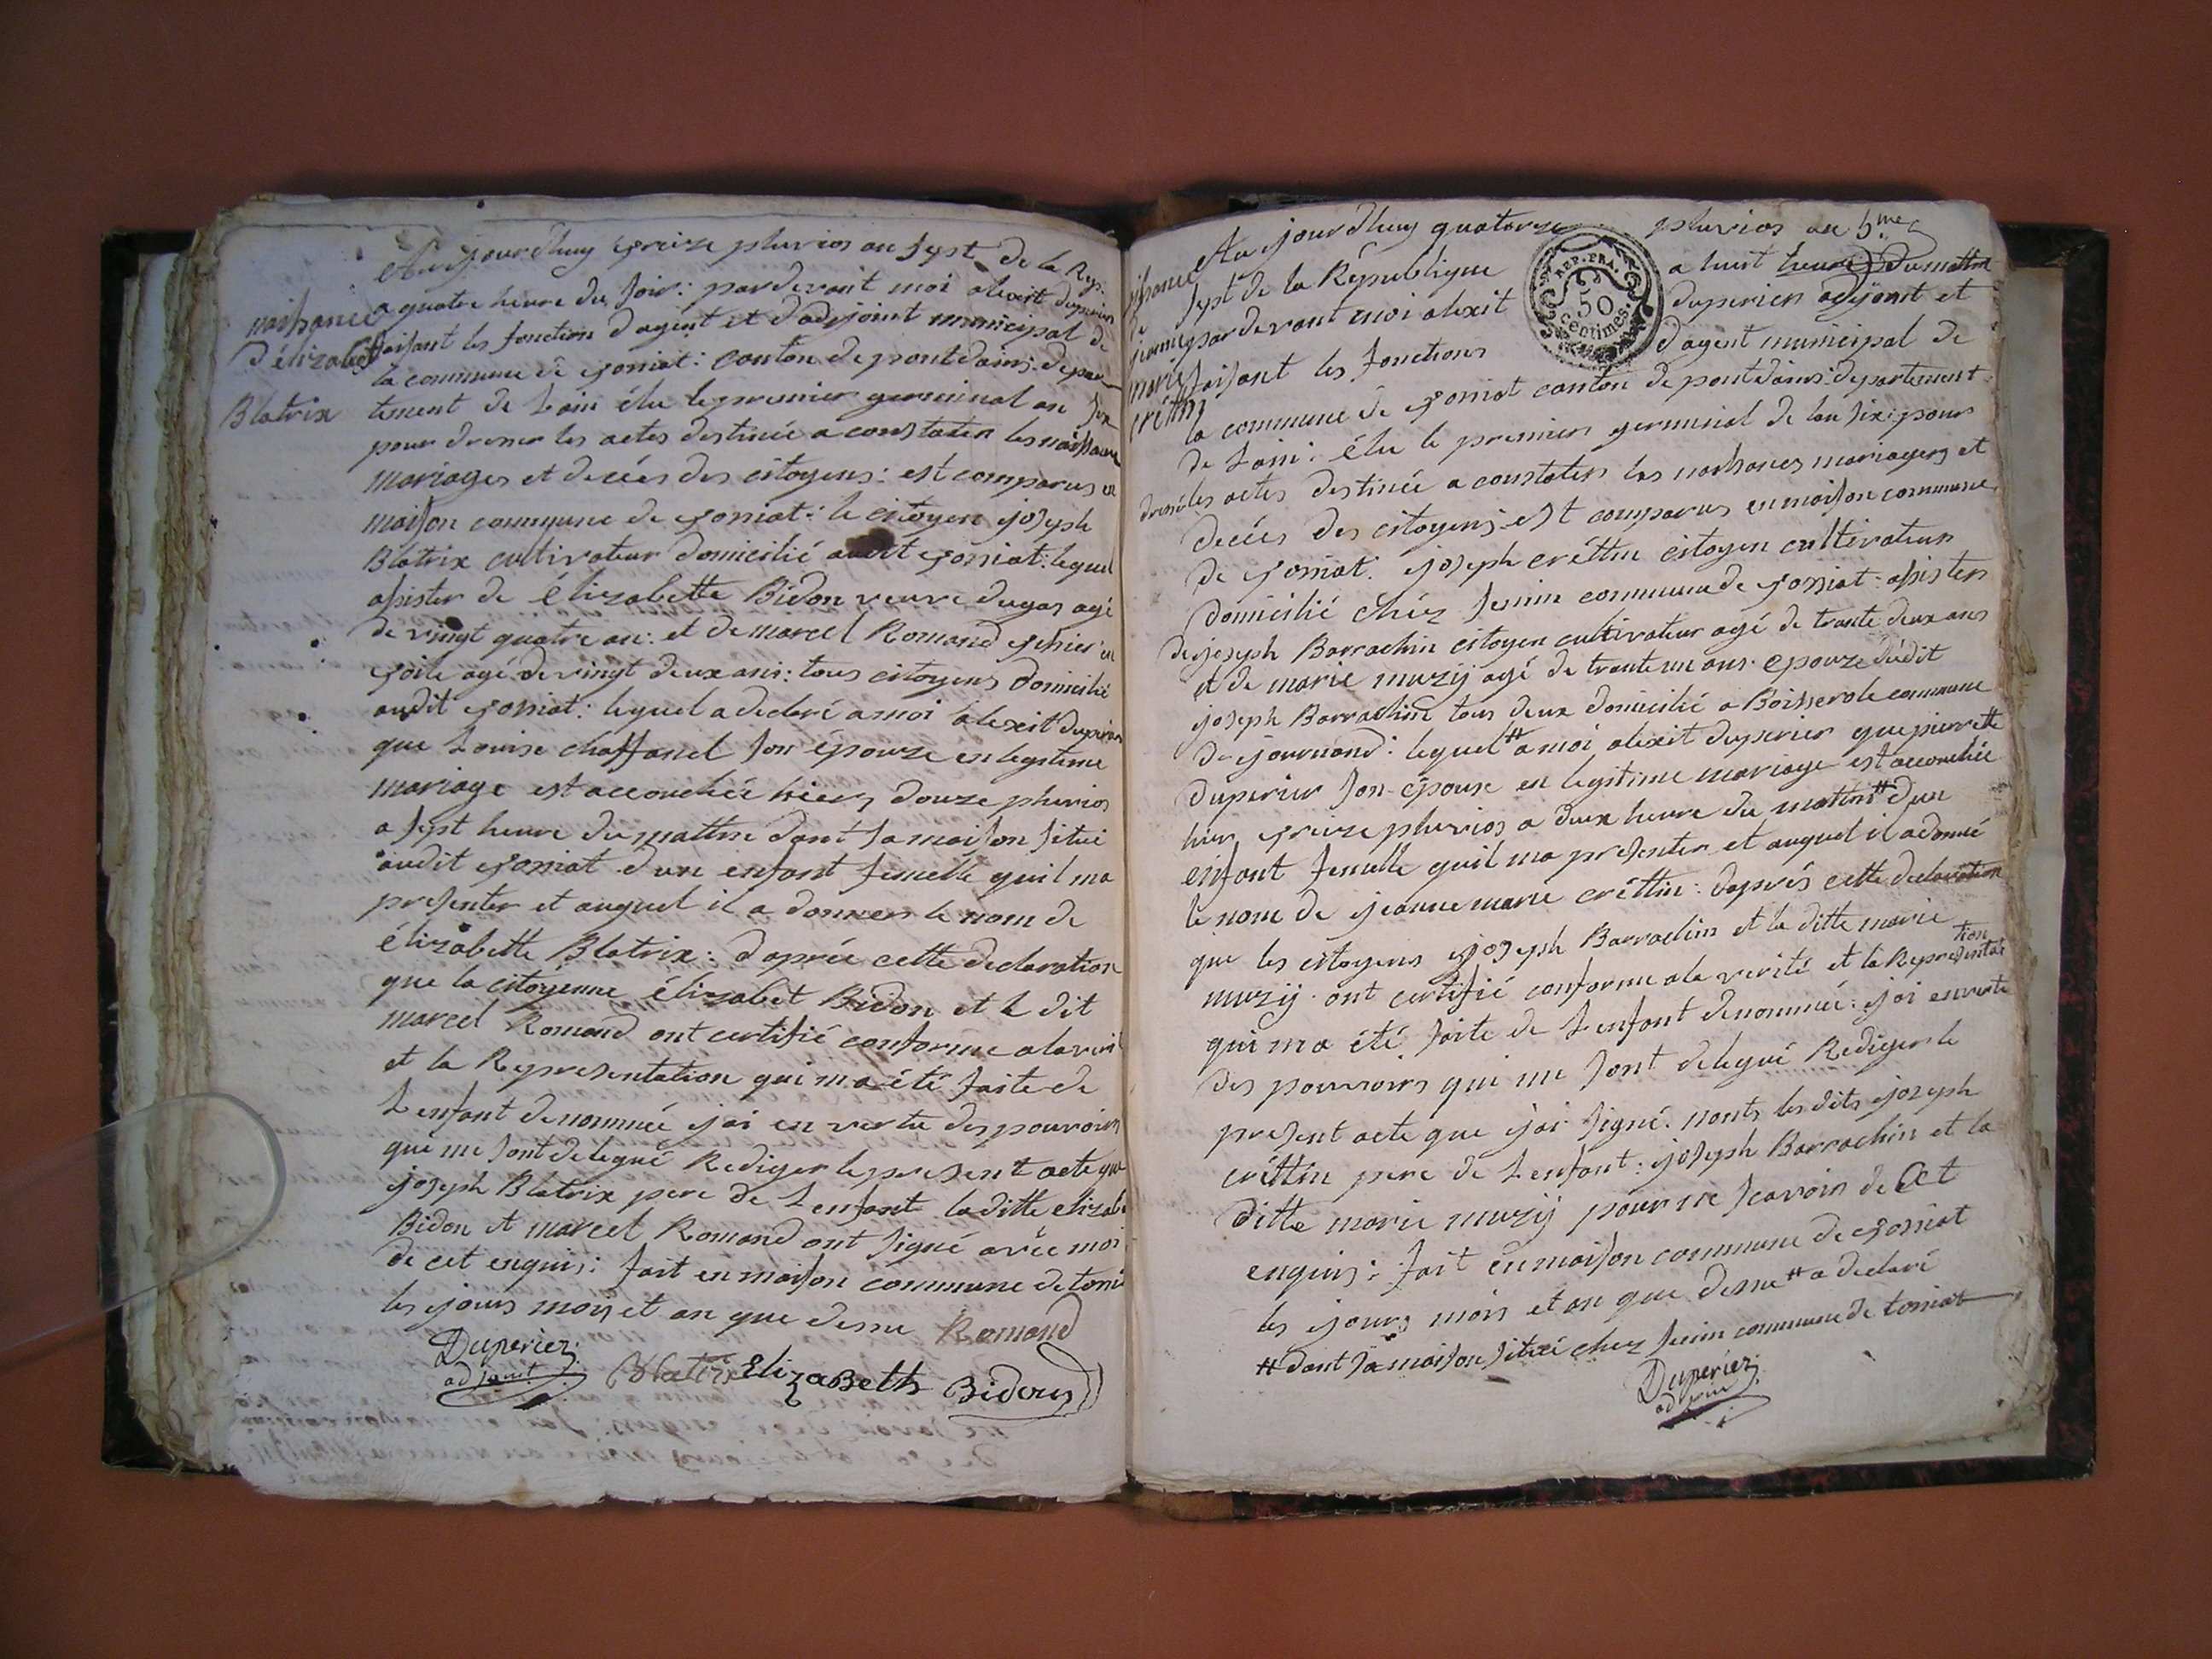 Au jourdhuy treize pluvios an sept de la Rep.
a quatre heure du soir: pardevant moi alexit duperier
faisant les fonction dagent et dadjoint municipal de
la commune de tossiat: canton de pontdains: depar
tement de Lain élu le premier germinal an six
pour dresser les actes destinée a constater les naissance
mariages et decées des citoyens: est comparus en
maison commune de tossiat: le citoyen joseph
Blatrix cultivateur domicilié audit tossiat: lequel
assister de élizabette Bidon veuve dugas agé
de vingt quatre an: et de marcel Romand
toile agé de vingt deux ans: tous citoyens domicilié
audit tossiat: lequel a declaré a moi alexit duperier
que Louise chaffanel son épouze en legitime
mariage est accouchée hier douze pluvios
a sept heure du mattin dant sa maison situé
audit tossiat dun enfant femelle quil ma
presenter et auquel il a donner le nom de
élizabette Blatrix: daprée cette declaration
que la citoyenne élizabet Bidon et le dit
marcel Romand ont certifié conforme a la verit
et la Representation qui ma été faite de
Lenfant denommée jai en vertu des pouvoirs
qui me sont delegué Rediger le present acte que
joseph Blatrix pere de Lenfant la ditte elizab
Bidon et marcel Romand ont signé avée moi
de cet enquis: fait en maison commune de tossia
les jours mois et an que dessu Romand
Duperier
adjoint Blatrix Elizabeth Bidon
naissance
délizabet
Blatrix
Au jourdhuy quatorze pluvios an 7.me
sept de la République a huit heure du mattin
pardevant moi alexit duperier adjoint et
faisant les fonctions dagent municipal de
la commune de tossiat canton de pontdains: departement
de Lain: élu le premier germinal de lan six: pour
dresser les actes destinée a constater les naissances mariages et
decées des citoyens est comparus en maison commune
de tossiat. joseph créttin citoyen cultivateur
domicilié chéz commune de tossiat: assister
de joseph Barrachin citoyen cultivateur agé de trante deux ans
et de marie muzij agé de trante un ans. epouze dudit
joseph Barrachin tous deux domicilié a Boisserole commune
de journand: lequel # a moi alexit duperier que pierrette
duperier son épouse en legitime mariage est accouchée
hier treize pluvios a deux heure du mattin # dun
enfant femelle quil ma presenter et auquel il a donné
le nom de jeanne marie créttin: daprés cette declaration
que les citoyens joseph Barrachin et la ditte marie
muzij ont certifié conforme a la verité et la Representation
qui ma été faite de Lenfant denommée: jai en vertu
des pouvoirs qui me sont delegué Rediger le
present acte que jai signé. nonts les dits joseph
créttin pere de Lenfant: joseph Barrachin et la
ditte marie muzij pour ne scavoir de cet
enquis: fait en maison commune de tossiat
les jours mois et an que dessu # a declaré
# dant sa maison situé chez commune de tossiat
Duperier
adjoint
jeanne
marie
créttin
REP. FRA.
50
Centimes.